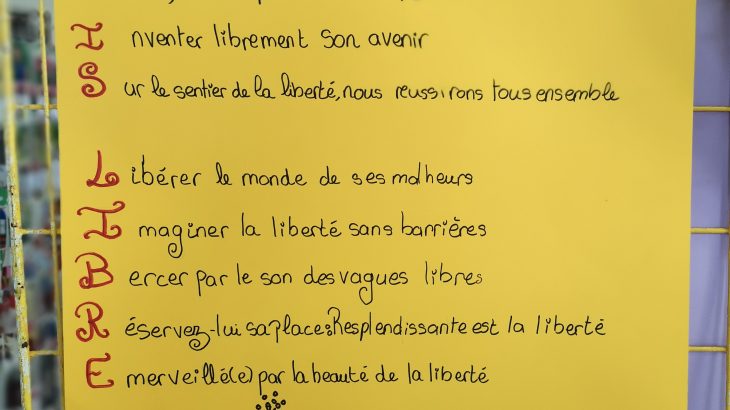 Inventer librement son avenir
Sur le sentier de la liberté, nous reussirons tous ensemble
Libérer le monde de ses malheurs
Imaginer la liberté sans barrières
Bercer par le son des vagues libres
Réservez-lui sa place: Resplendissante est la liberté
Emerveillé(e) par la beauté de la liberté